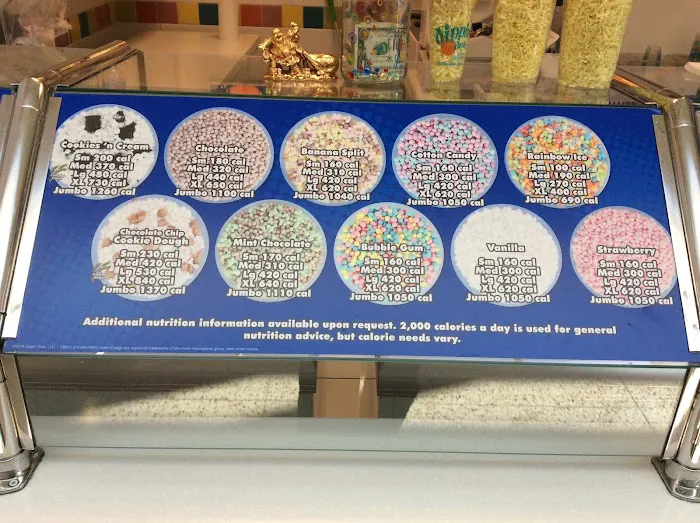 Dippin
Cookies 'n Cream
Sm 200 cal
Med 370 cal
Lg 480 cal
XL 730 cal
Jumbo 1260 cal
Chocolate
Sm 180 cal
Med 320 cal
Lg 440 cal
XL 650 cal
Jumbo 1100 cal
Banana Split
Sm 160 cal
Med 310 cal
Lg 420 cal
XL 620 cal
Jumbo 1040 cal
Cotton Candy
Sm 160 cal
Med 300 cal
Lg 420 cal
XL 620 cal
Jumbo 1050 cal
Rainbow Ice
Sm 100 cal
Med 190 cal
Lg 270 cal
XL 400 cal
Jumbo 690 cal
Chocolate Chip
Cookie Dough
Sm 230 cal
Med 420 cal
Lg 530 cal
XL 840 cal
Jumbo 1370 cal
Mint Chocolate
Sm 170 cal
Med 310 cal
Lg 430 cal
XL 640 cal
Jumbo 1110 cal
Bubble Gum
Sm 160 cal
Med 300 cal
Lg 420 cal
XL 620 cal
Jumbo 1050 cal
Vanilla
Sm 160 cal
Med 300 cal
Lg 420 cal
XL 620 cal
Jumbo 1050 cal
Strawberry
Sm 160 cal
Med 300 cal
Lg 420 cal
XL 620 cal
Jumbo 1050 cal
Additional nutrition information available upon request. 2,000 calories a day is used for general
nutrition advice, but calorie needs vary.